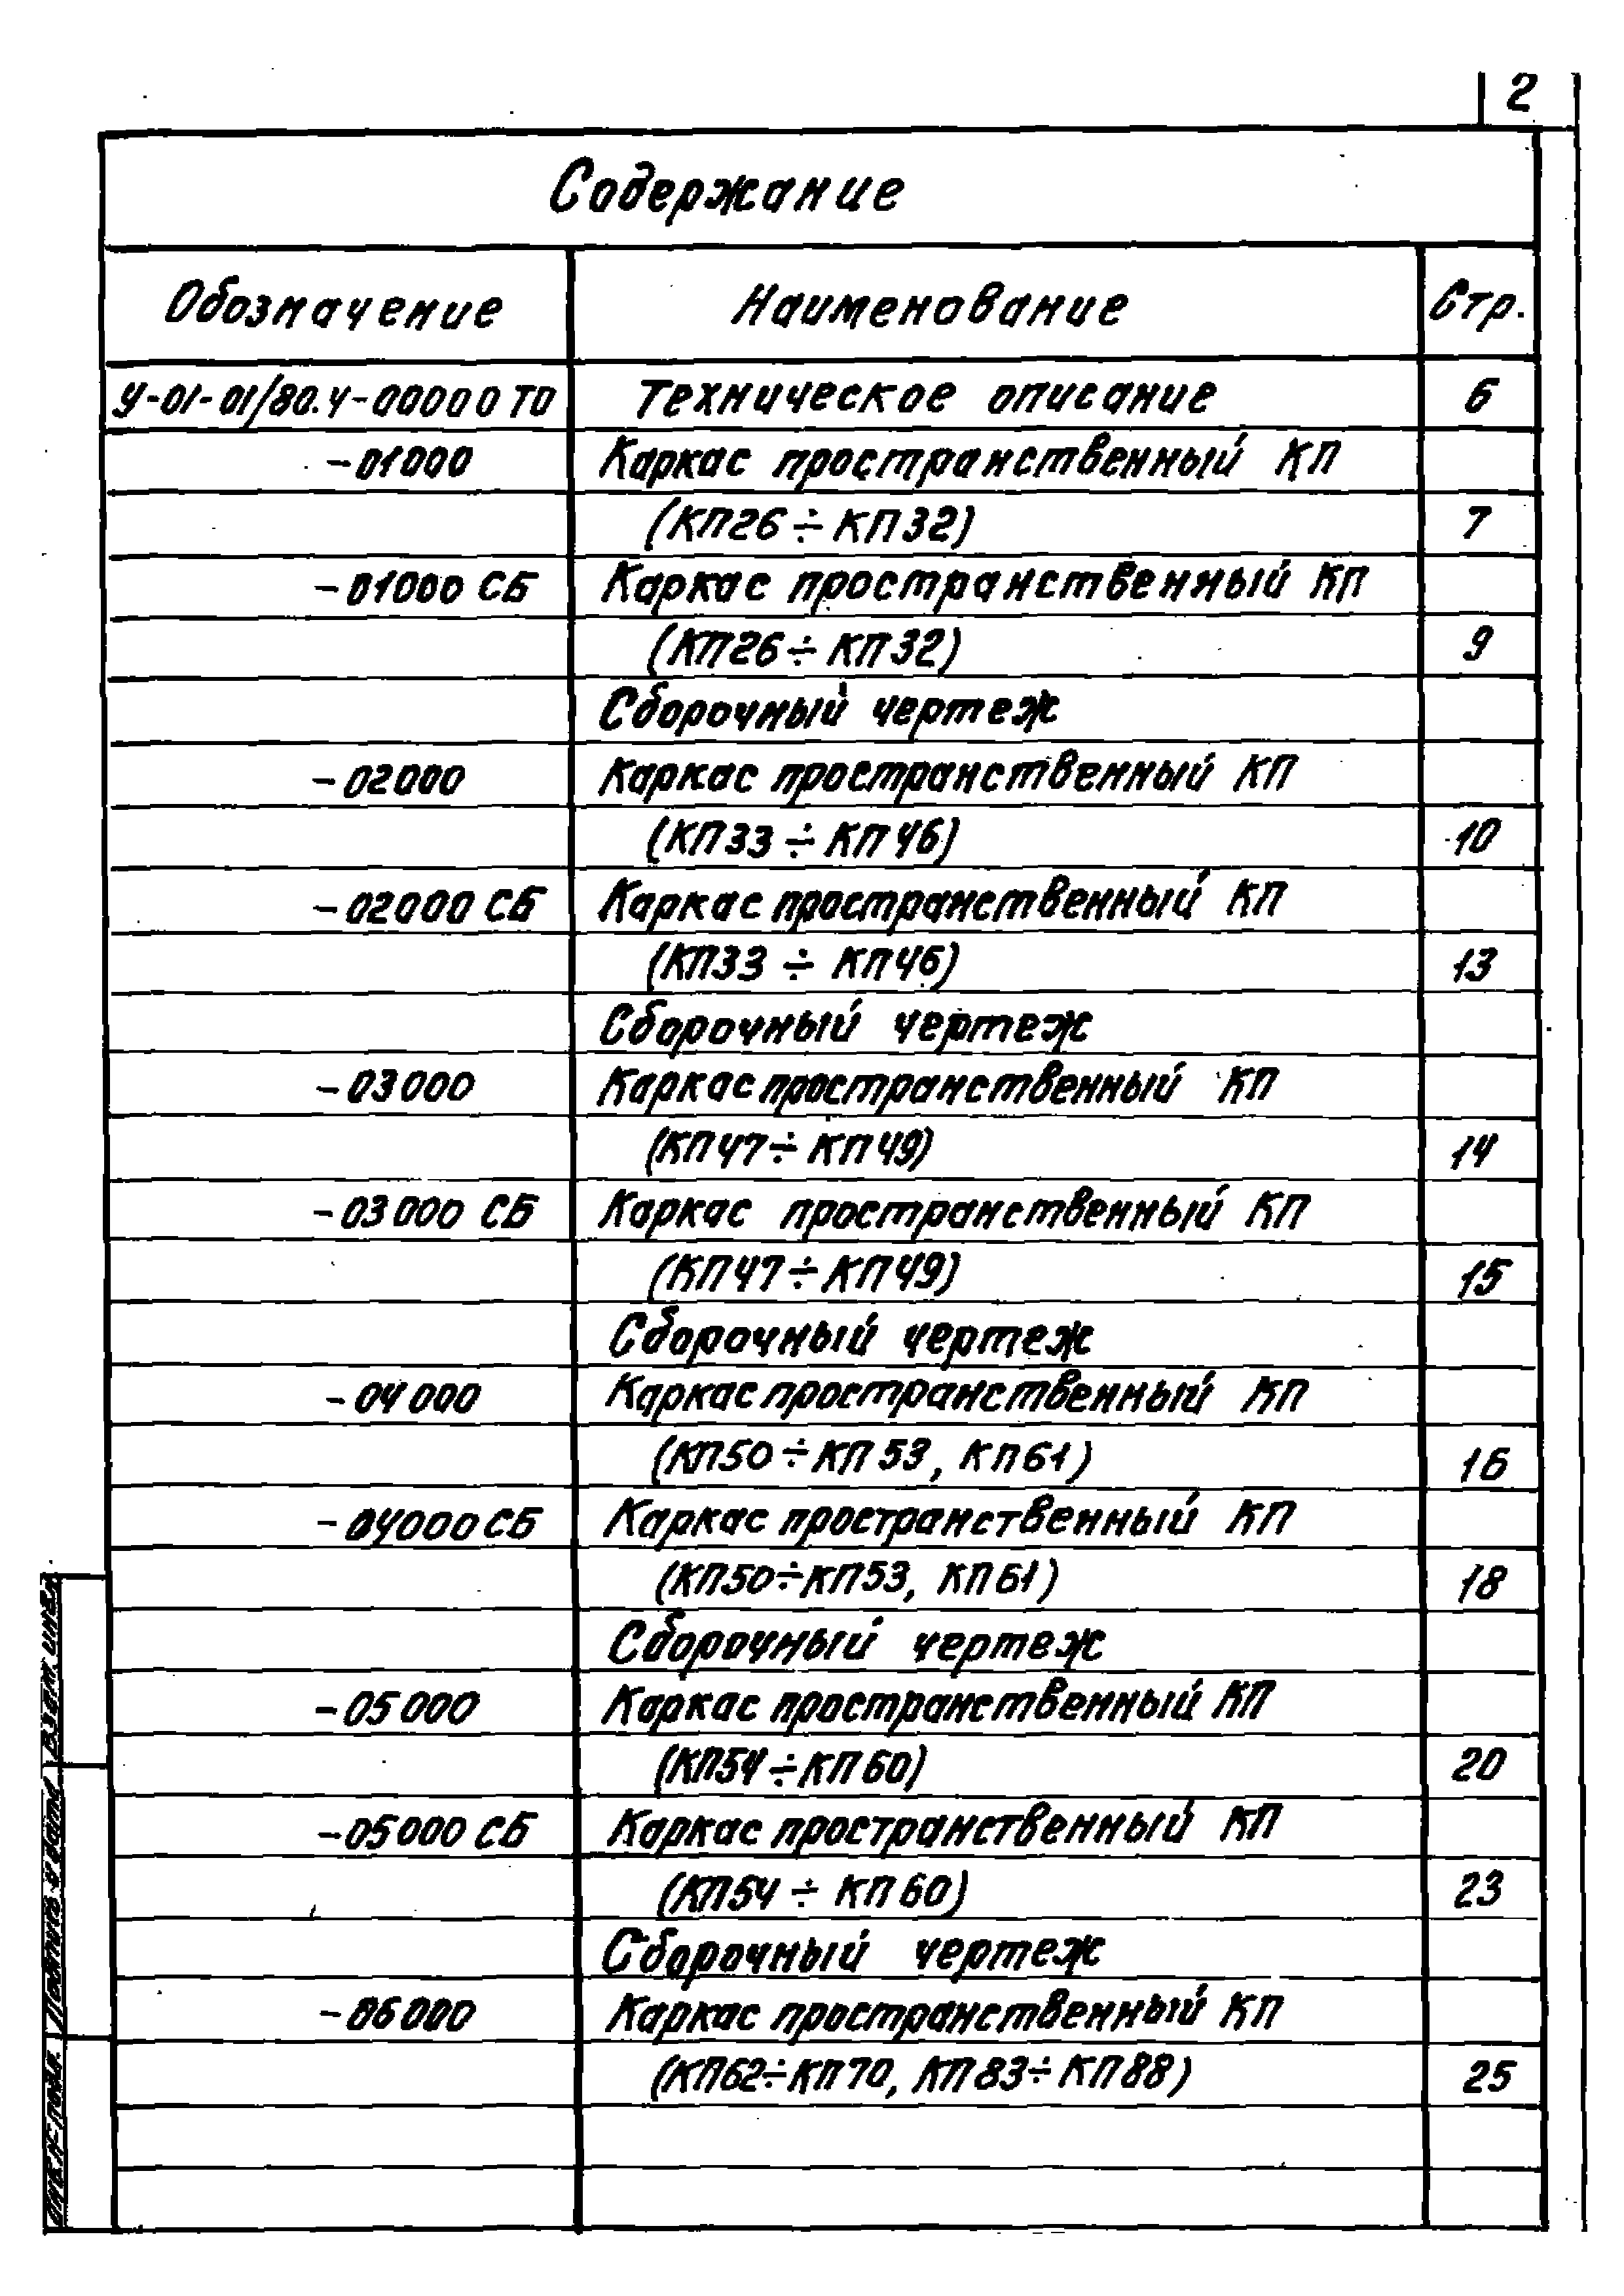 2
Содержание
Обозначение Наименование Стр.
У-01-01/80.4-00000 ТО Техническое описание 6
-01000 Каркас пространственный КП
(КП26÷КП32) 7
-01000 СБ Каркас пространственный КП
(КП26÷КП32) 9
Сборочный чертеж
-02000 Каркас пространственный КП
(КП33÷КП46) 10
-02000 СБ Каркас пространственный КП
(КП33÷КП46) 13
Сборочный чертеж
-03000 Каркас пространственный КП
(КП47÷КП49) 14
-03000 СБ Каркас пространственный КП
(КП47÷КП49) 15
Сборочный чертеж
-04000 Каркас пространственный КП
(КП50÷КП53, КП61) 16
-04000 СБ Каркас пространственный КП
(КП50÷КП53, КП61) 18
Сборочный чертеж
-05000 Каркас пространственный КП
(КП54÷КП60) 20
-05000 СБ Каркас пространственный КП
(КП54÷КП60) 23
Сборочный чертеж
-06000 Каркас пространственный КП
(КП62÷КП70, КП83÷КП88) 25
Взам. инв.
Подпись и дата
Инв. № подл.